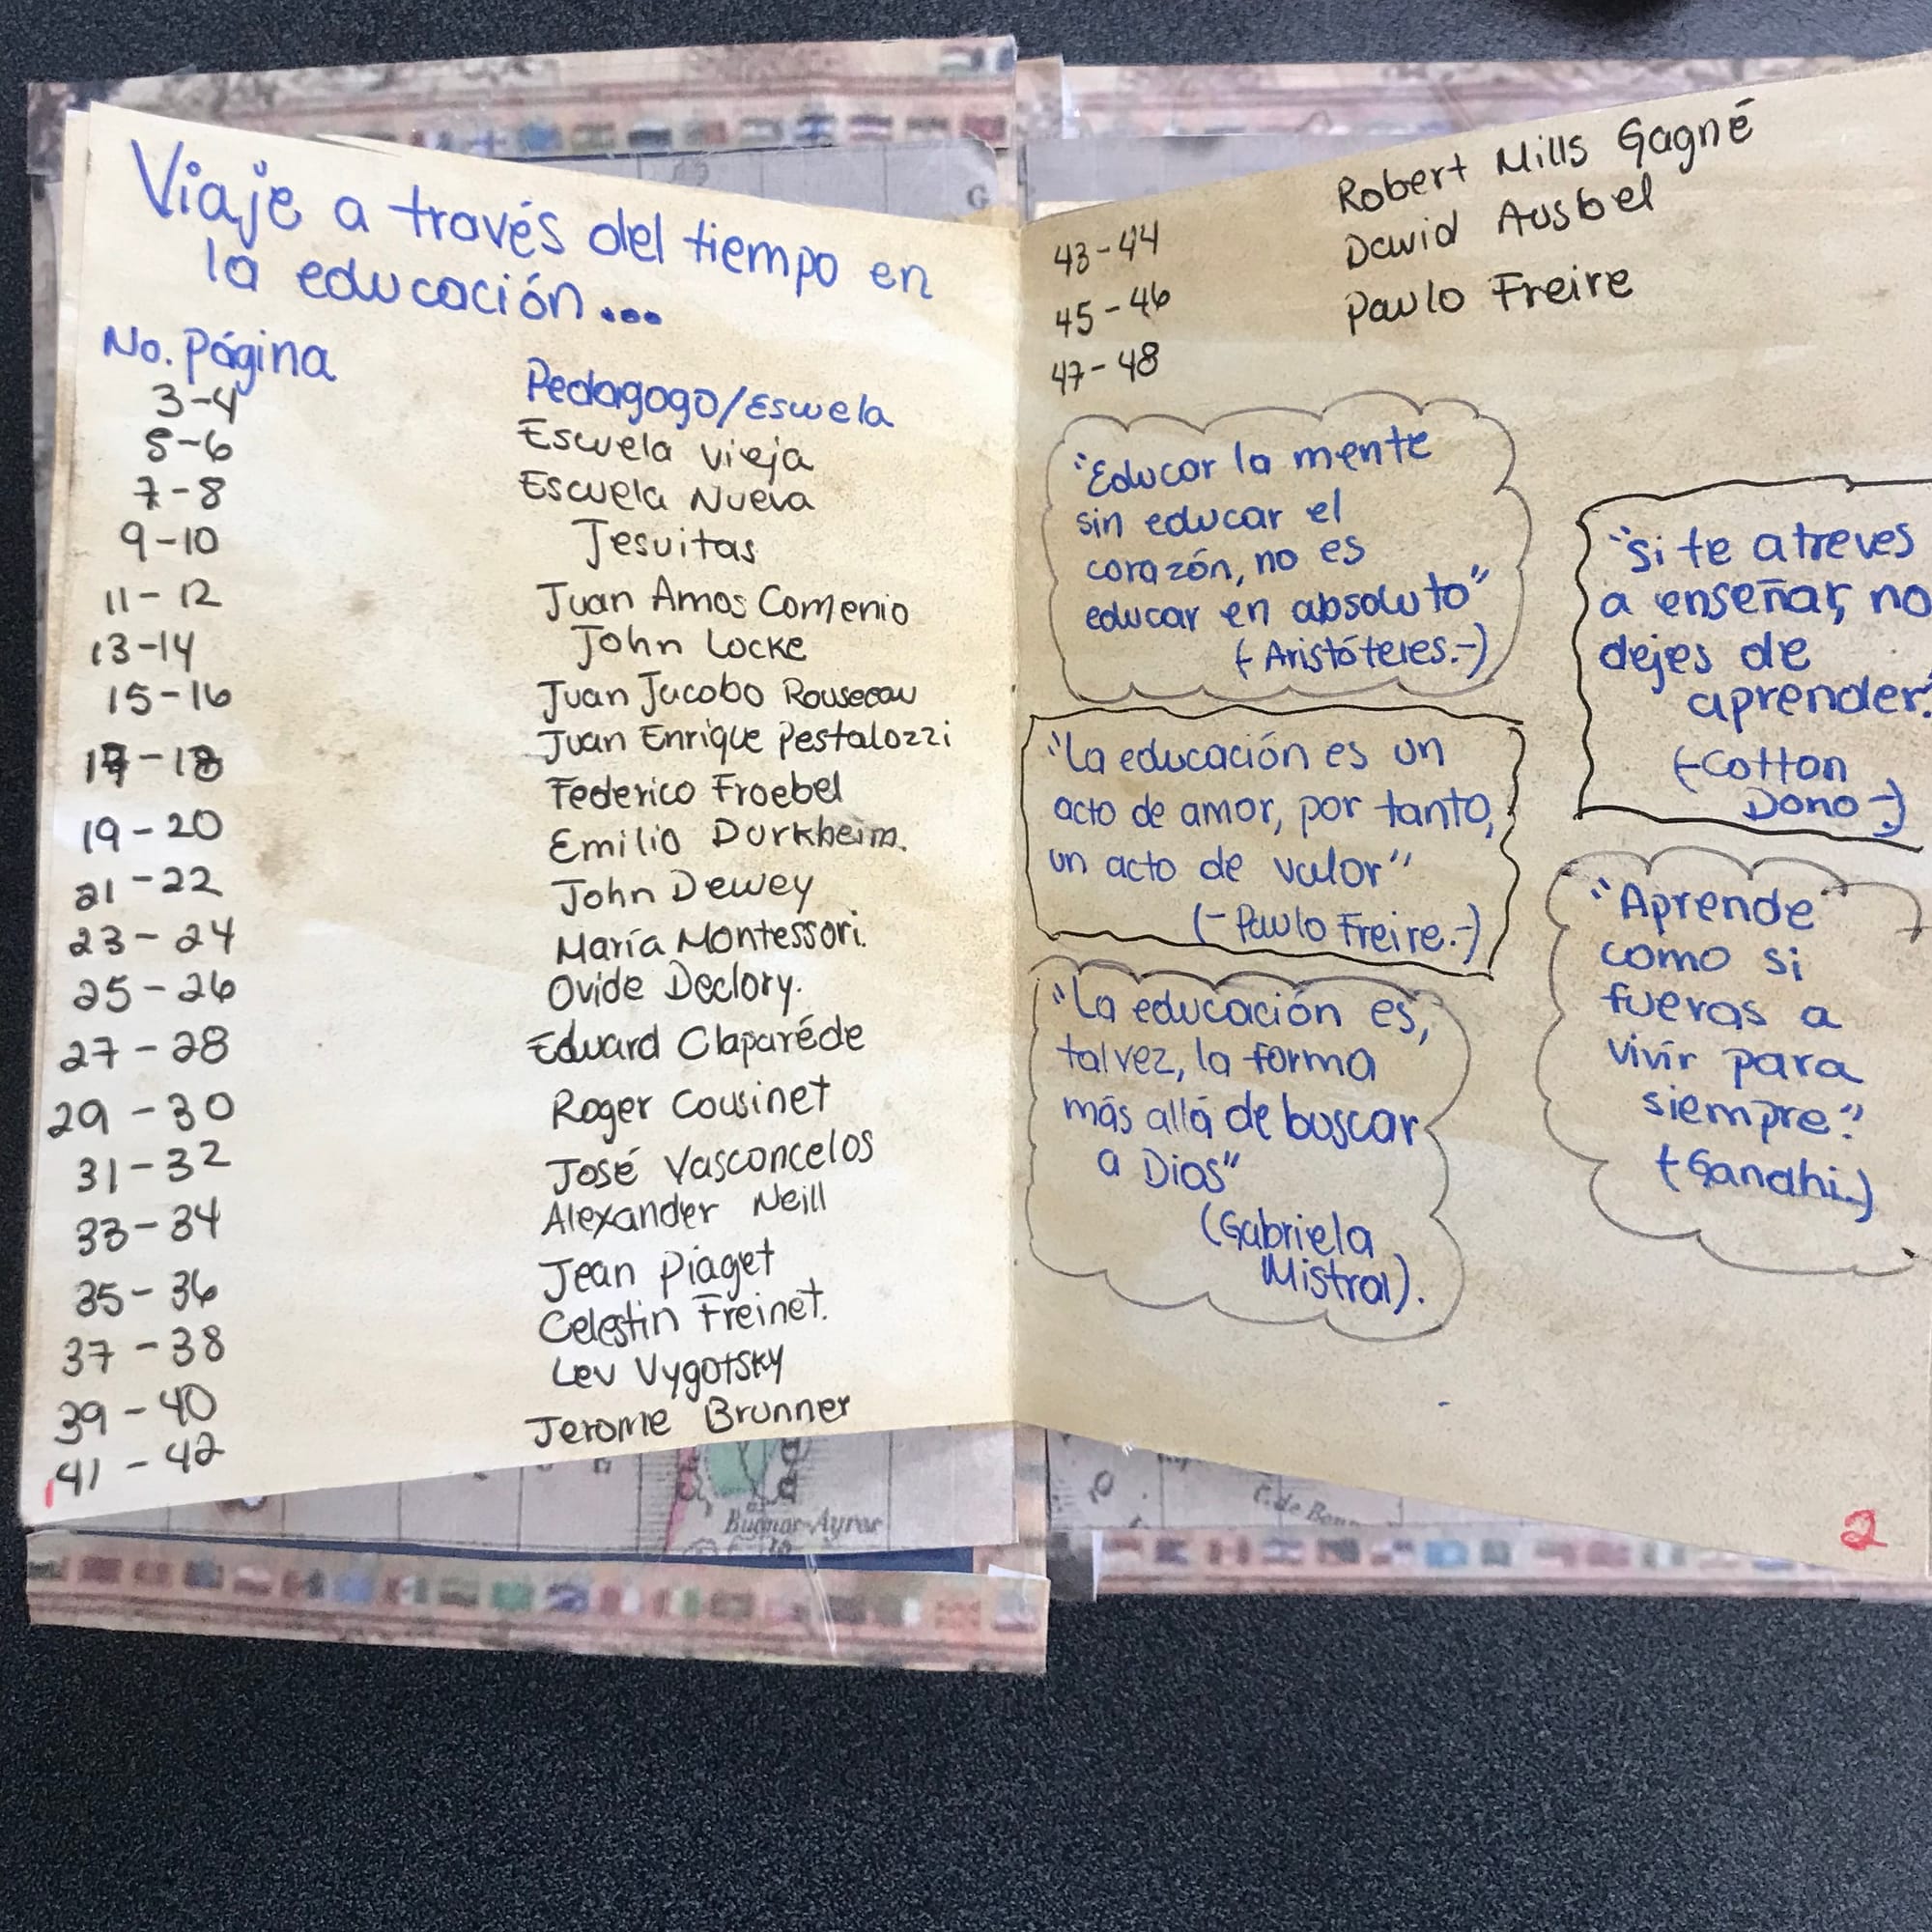 Viaje a través del tiempo en
la educación...
No. Página Pedagogo/Escuela
3-4 Escuela vieja
5-6 Escuela Nueva
7-8 Jesuitas
9-10 Juan Amos Comenio
11-12 John Locke
13-14 Juan Jacobo Rouseau
15-16 Juan Enrique Pestalozzi
17-18 Federico Froebel
19-20 Emilio Durkheim.
21-22 John Dewey
23-24 María Montessori.
25-26 Ovide Declory.
27-28 Eduard Claparéde
29-30 Roger Cousinet
31-32 José Vasconcelos
33-34 Alexander Neill
35-36 Jean Piaget
37-38 Celestin Freinet.
39-40 Lev Vygotsky
41-42 Jerome Brunner
1
43-44 Robert Mills Gagné
45-46 David Ausbel
47-48 Paulo Freire
"Educar la mente
sin educar el
corazón, no es
educar en absoluto"
(-Aristóteles.-)
"La educación es un
acto de amor, por tanto,
un acto de valor"
(-Paulo Freire.-)
"La educación es,
tal vez, la forma
más allá de buscar
a Dios"
(Gabriela
Mistral).
"si te atreves
a enseñar, no
dejes de
aprender."
(-Cotton
Dono-)
"Aprende
como si
fueras a
vivir para
siempre".
(-Gandhi.-)
2
G